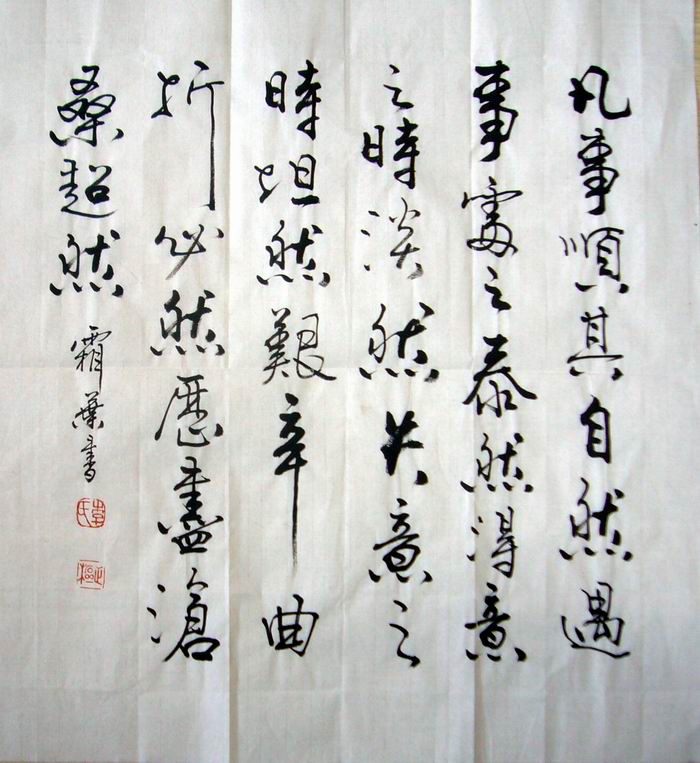 凡事順其自然遇
事處之泰然得意
之時淡然失意之
時坦然艱辛曲
折必然歷盡滄
桑超然
霜葉書